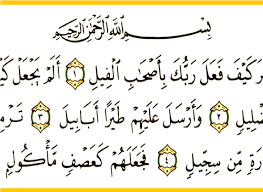 بِسْمِ ٱللَّهِ ٱلرَّحْمَٰنِ ٱلرَّحِيمِ
رَ كَيْفَ فَعَلَ رَبُّكَ بِأَصْحَٰبِ ٱلْفِيلِ ١ أَلَمْ يَجْعَلْ كَيْ
ضْلِيلٍ ٢ وَأَرْسَلَ عَلَيْهِمْ طَيْرًا أَبَابِيلَ ٣ تَرْمِ
رَةٍ مِّن سِجِّيلٍ ٤ فَجَعَلَهُمْ كَعَصْفٍ مَّأْكُولٍ